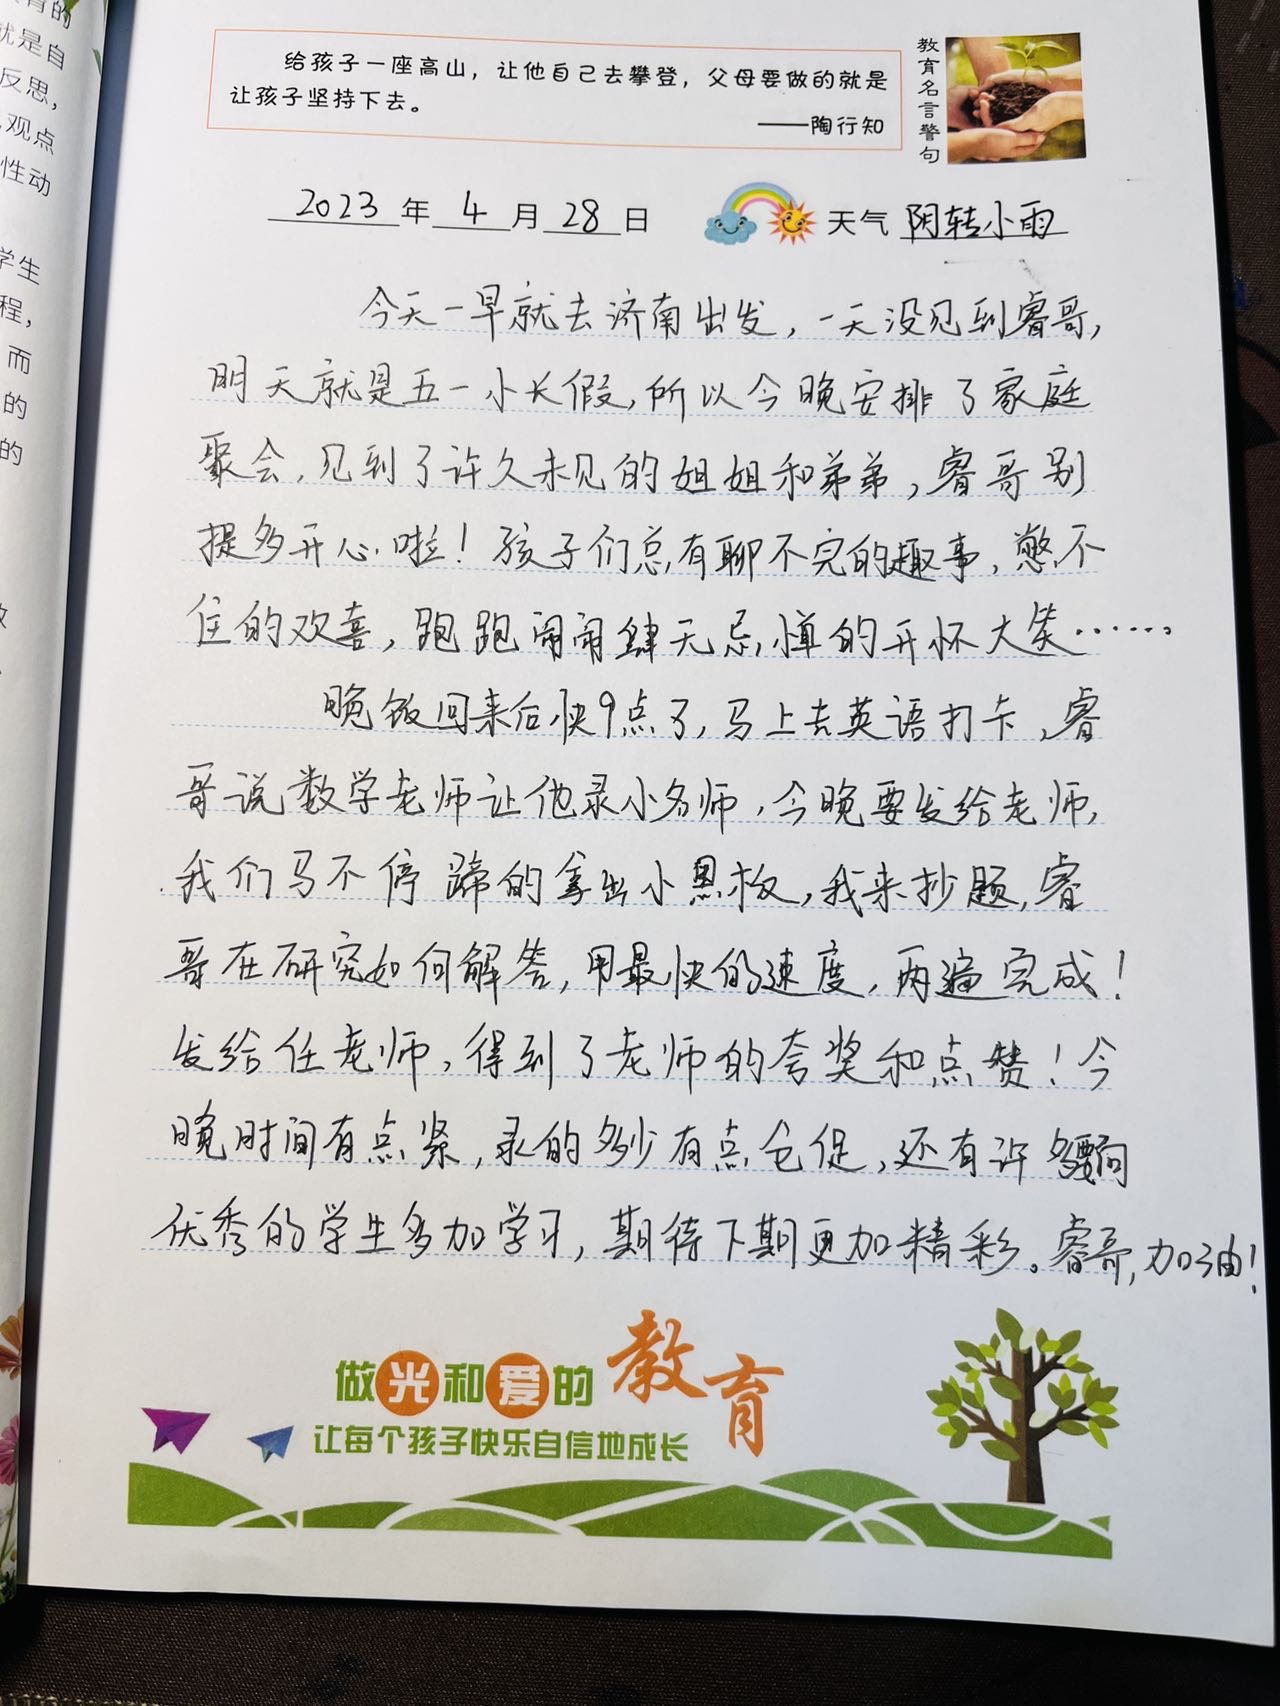 育的
就是自
反思，
观点
性动
学生
程，
而
的
的
给孩子一座高山，让他自己去攀登，父母要做的就是
让孩子坚持下去。
——陶行知
教育名言警句
2023年4月28日 天气 阴转小雨
今天一早就去济南出发，一天没见到睿哥，
明天就是五一小长假，所以今晚安排了家庭
聚会，见到了许久未见的姐姐和弟弟，睿哥别
提多开心啦！孩子们总有聊不完的趣事，憋不
住的欢喜，跑跑闹闹肆无忌惮的开怀大笑……。
晚饭回来后快9点了，马上去英语打卡，睿
哥说数学老师让他录小名师，今晚要发给老师，
我们马不停蹄的拿出小黑板，我来抄题，睿
哥在研究如何解答，用最快的速度，两遍完成！
发给任老师，得到了老师的夸奖和点赞！今
晚时间有点紧，录的多少有点仓促，还有许多要向
优秀的学生多加学习，期待下期更加精彩。睿哥，加油！
做光和爱的教育
让每个孩子快乐自信地成长